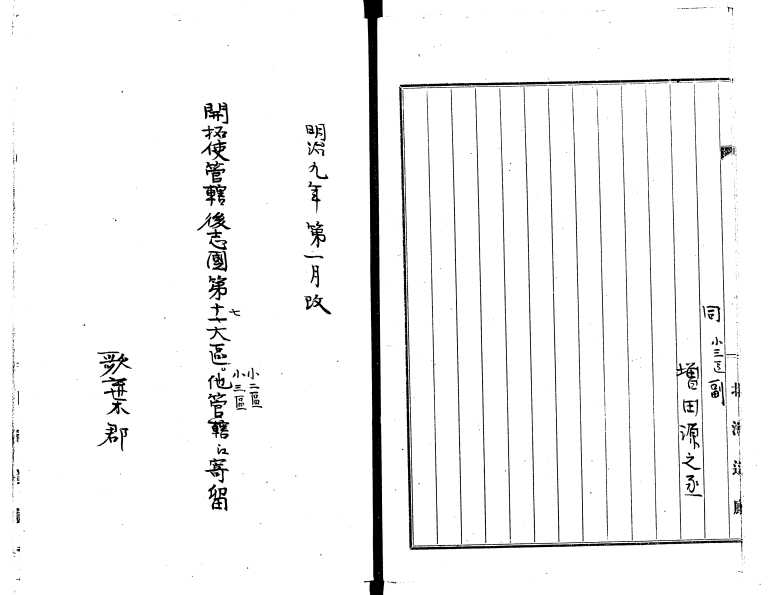 同 小三区副
増田源之丞
北海道廳
明治九年第一月改
開拓使管轄後志國第十七大區小二區小三區他管轄江寄留
歌棄郡